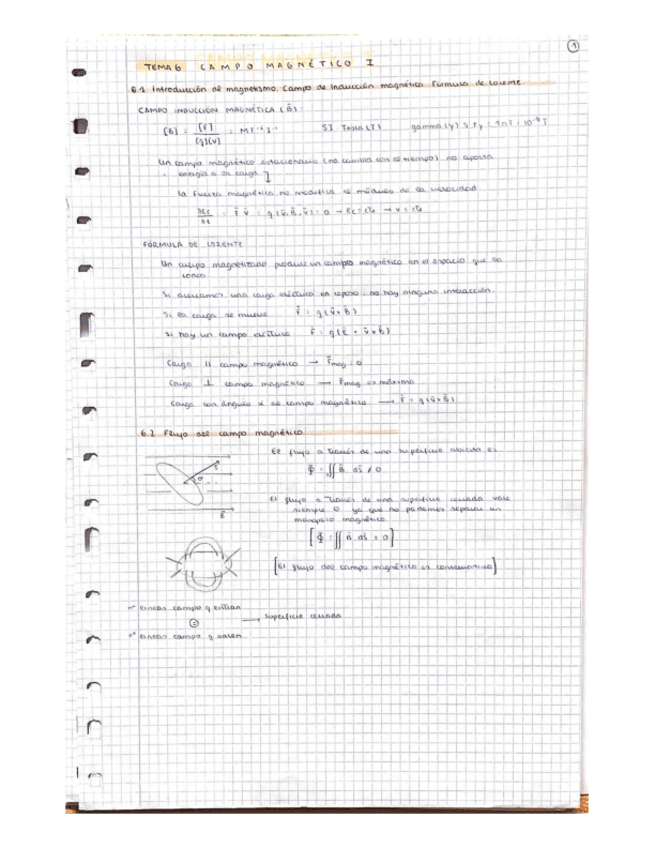 1
TEMA 6 CAMPO MAGNÉTICO I
6.1 Introducción al magnetismo. Campo de inducción magnética. Fórmula de Lorentz
CAMPO INDUCCIÓN MAGNÉTICA (B):
[B] = [F] / [q][v] = M T⁻¹ I⁻¹ SI Tesla (T) gamma (γ) 1γ = 1nT = 10⁻⁹ T
Un campo magnético estacionario (no cambia con el tiempo) no aporta
energía a la carga
La fuerza magnética no modifica el módulo de la velocidad
FÓRMULA DE LORENTZ
Un cuerpo magnetizado produce un campo magnético en el espacio que lo
rodea
Si acercamos una carga eléctrica en reposo, no hay ninguna interacción.
Si la carga se mueve F = q(v × B)
Si hay un campo eléctrico F = q(E + v × B)
Carga || campo magnético → Fmag = 0
Carga ⊥ campo magnético → Fmag es máxima
Carga con ángulo α al campo magnético → F = q(v × B)
6.2 Flujo del campo magnético
El flujo a través de una superficie abierta es
Φ = ∬ B ds ≠ 0
El flujo a través de una superficie cerrada vale
siempre 0 ya que no podemos separar un
monopolo magnético
[Φ = ∬ B ds = 0]
[El flujo del campo magnético es conservativo]
B
nº líneas campo q entran
= → Superficie cerrada
nº líneas campo q salen